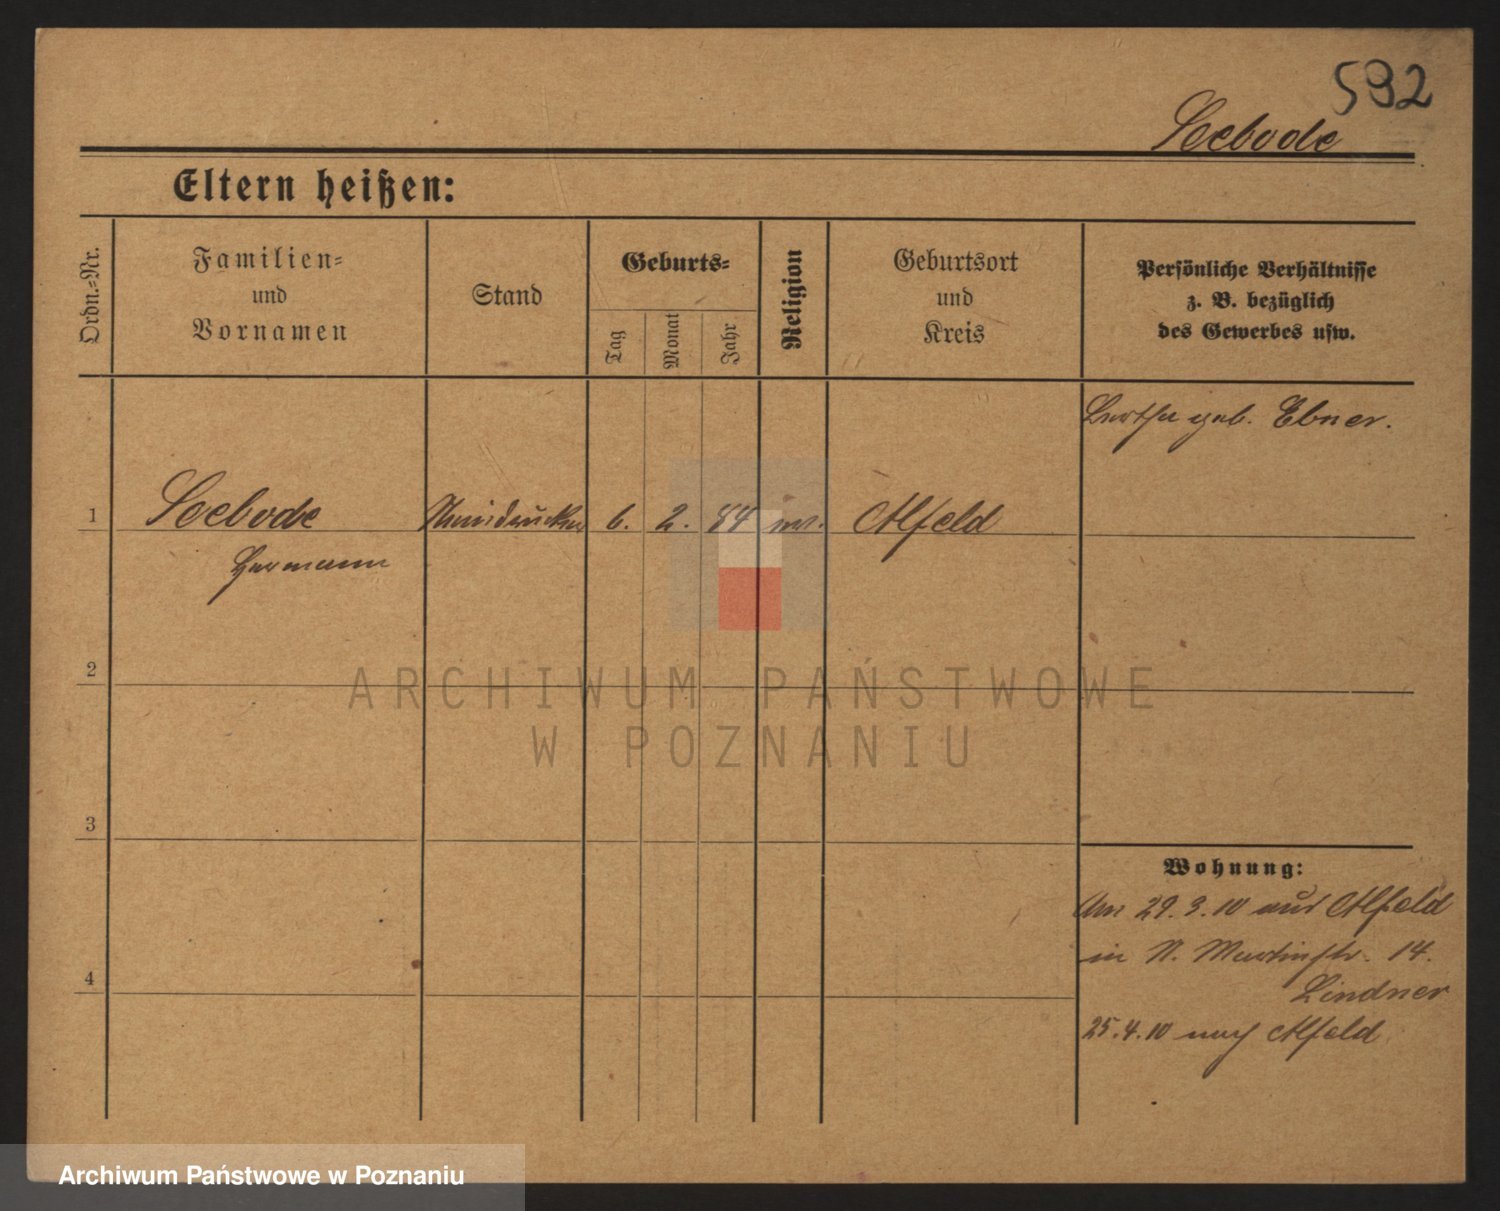 592
Seebode
Eltern heißen:
Ordn.-Nr.
Familien-
und
Vornamen
Stand
Geburts-
Tag
Monat
Jahr
Religion
Geburtsort
und
Kreis
Persönliche Verhältnisse
z. B. bezüglich
des Gewerbes usw.
Bertha geb. Ebner.
1
Seebode
6. 2. 84
Alfeld
Hermann
2
ARCHIWUM PAŃSTWOWE
W POZNANIU
3
Wohnung:
Am 29.3.10 aus Alfeld
in St. Martinstr. 14.
Lindner
4
25.4.10 nach Alfeld
Archiwum Państwowe w Poznaniu